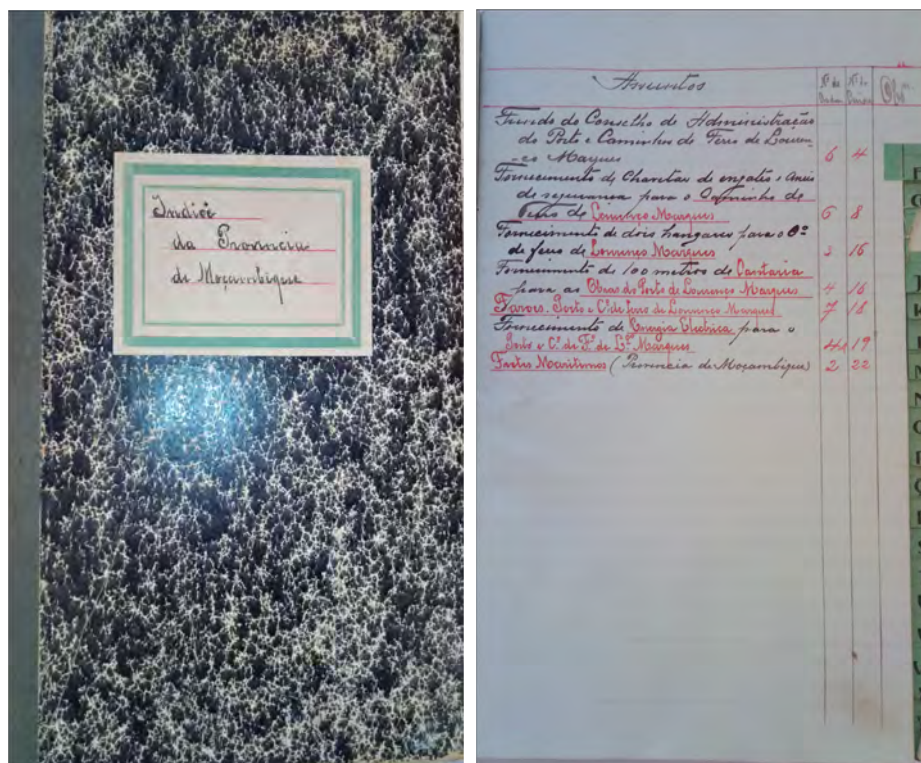 Indice
da Provincia
de Moçambique
Assuntos Nº de Ordem Nº da
Fundo do Conselho de Administração
do Porto e Caminhos de Ferro de Louren-
-ço Marques 6 4
Fornecimento de Chavetas de engates e Aneis
de segurança para o Caminho de
Ferro de Lourenço Marques 6 8
Fornecimento de dois hangares para o Cº
de ferro de Lourenço Marques 3 16
Fornecimento de 100 metros de Cantaria
para as Obras do Porto de Lourenço Marques 4 16
Farois. Porto e Cº de ferro de Lourenço Marques 7 18
Fornecimento de Energia Electrica para o
Porto e Cº de Fº de Lço Marques 19
Fretes Maritimos (Provincia de Moçambique) 2 22